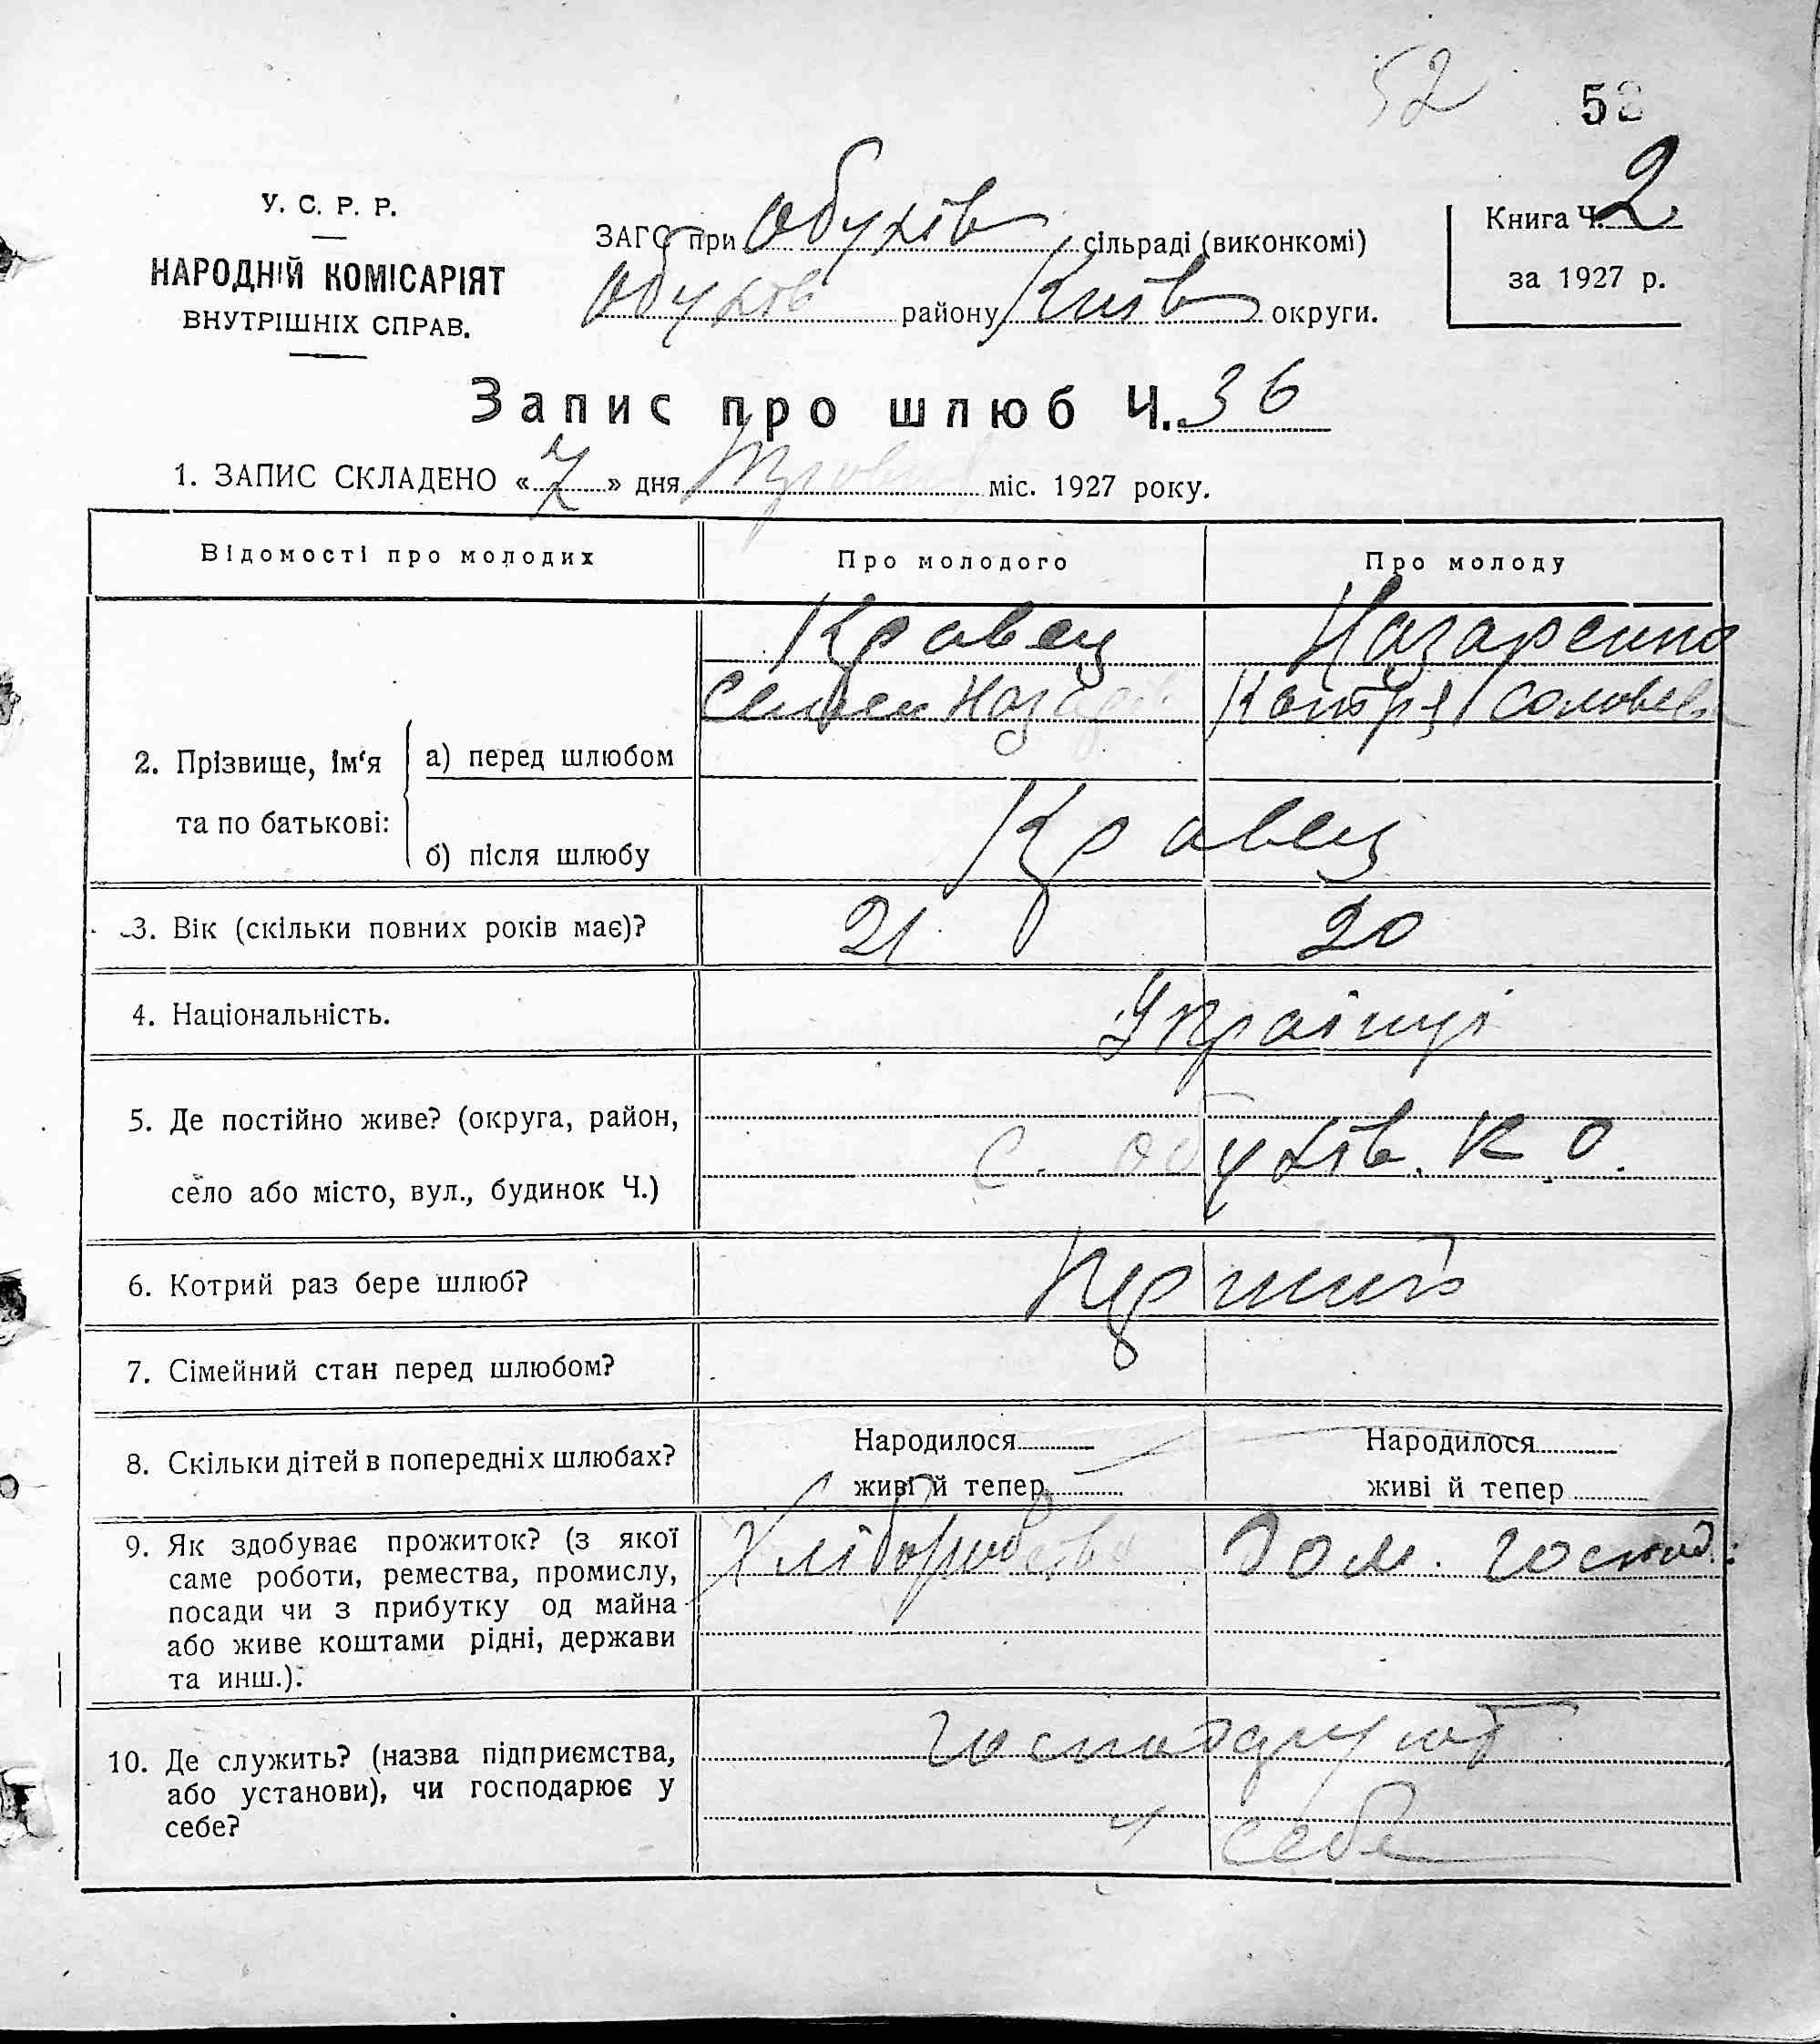 52
5
У. С. Р. Р.
НАРОДНІЙ КОМІСАРІЯТ
ВНУТРІШНІХ СПРАВ.
ЗАГС при Обухів сільраді (виконкомі)
Обухів району Київ округи.
Книга Ч. 2
за 1927 р.
Запис про шлюб Ч. 36
1. ЗАПИС СКЛАДЕНО « 7 » дня Травня міс. 1927 року.
Відомості про молодих Про молодого Про молоду
Кравец Назаренко
Семен Назарів Катря Соловев
2. Прізвище, ім'я
та по батькові:
а) перед шлюбом
б) після шлюбу
Кравец
3. Вік (скільки повних років має)? 21 20
4. Національність. Українці
5. Де постійно живе? (округа, район,
село або місто, вул., будинок Ч.)
с. Обухів. К О.
6. Котрий раз бере шлюб? Перший
7. Сімейний стан перед шлюбом?
8. Скільки дітей в попередніх шлюбах?
Народилося
живі й тепер
Народилося
живі й тепер
9. Як здобуває прожиток? (з якої
саме роботи, ремества, промислу,
посади чи з прибутку од майна
або живе коштами рідні, держави
та инш.).
Хліборобство Дом. господ.
10. Де служить? (назва підприємства,
або установи), чи господарює у
себе?
господарюют
у себе